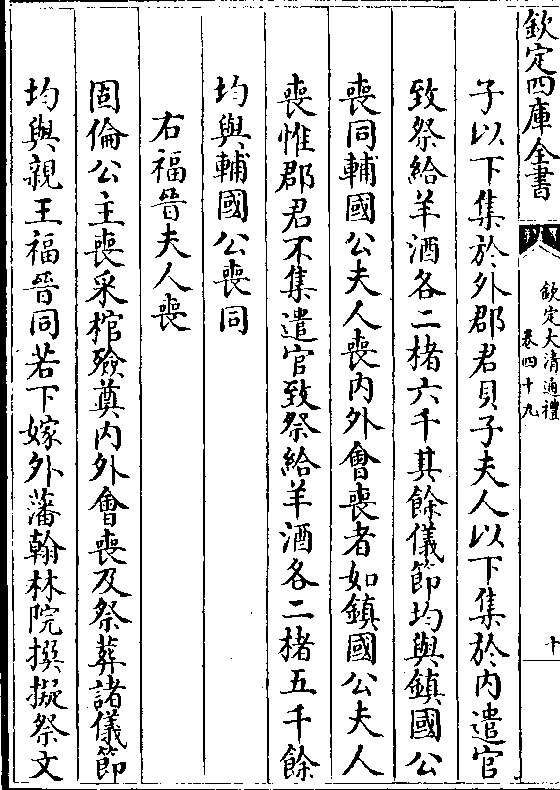 欽定四庫全書
欽定大清通禮
卷四十九
十
子以下集於外郡君貝子夫人以下集於內遣官
致祭給羊酒各二楮六千其餘儀節均與鎮國公
喪同輔國公夫人喪內外會喪者如鎮國公夫人
喪惟郡君不集遣官致祭給羊酒各二楮五千餘
均與輔國公喪同
右福晉夫人喪
固倫公主喪采棺殮奠內外會喪及祭葬諸儀節
均與親王福晉同若下嫁外藩翰林院撰擬祭文